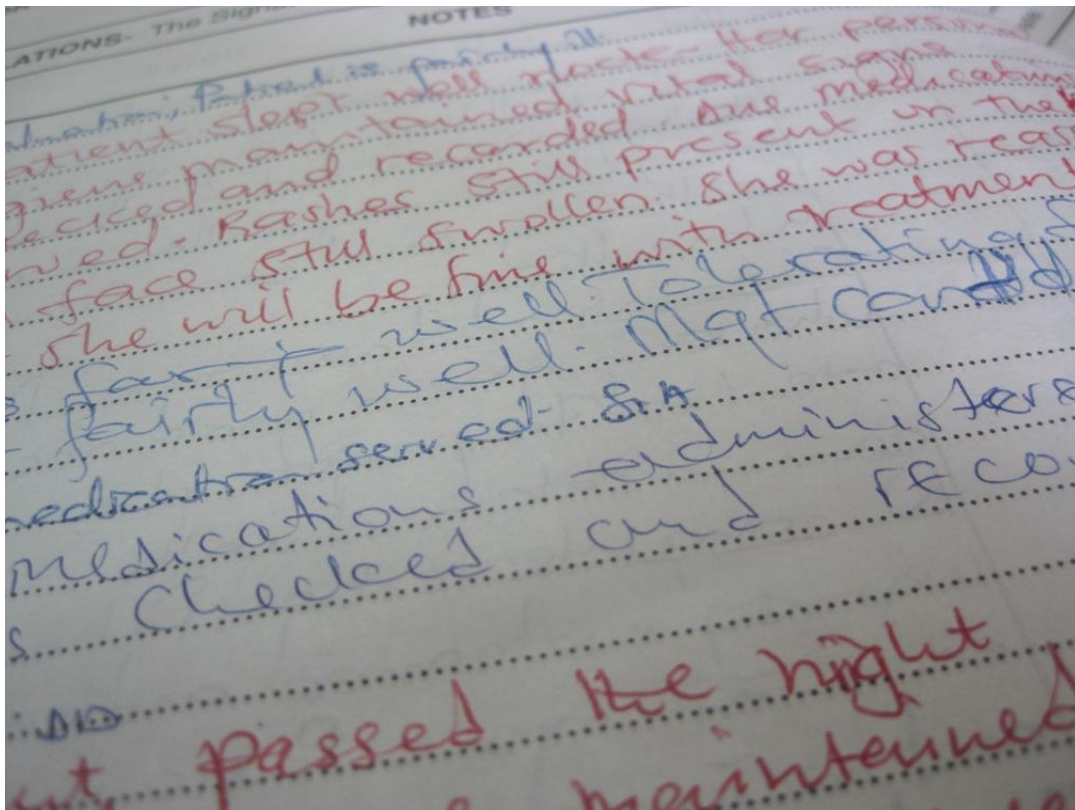 ATIONS- The Sign
NOTES
Patient is fairly
atient slept well nocte - Her person
giene maintained vital signs
ecked and recorded. Due medication
ved - Rashes still present on the
face still swollen. She was reas
she will be fine with treatment
well. Tolerating
fairly well. Mgt
medication served
medications administere
s checked and reco
passed the night
maintained